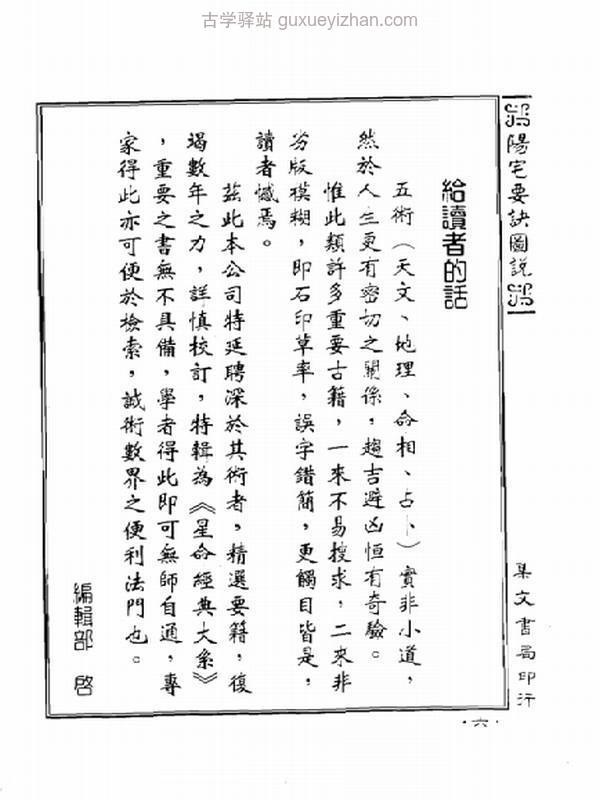 古学驿站 guxueyizhan.com
陽宅要訣圖説
集文書局印行
給讀者的話
五術（天文、地理、命相、占卜）實非小道，
然於人生更有密切之關係，趨吉避凶恒有奇驗。
惟此類許多重要古籍，一來不易搜求，二來非
劣版模糊，即石印草率，誤字錯簡，更觸目皆是，
讀者憾焉。
茲此本公司特延聘深於其術者，精選要籍，復
竭數年之力，詳慎校訂，特輯為《星命經典大系》
，重要之書無不具備，學者得此即可無師自通，專
家得此亦可便於檢索，誠術數界之便利法門也。
編輯部 啓
·六·